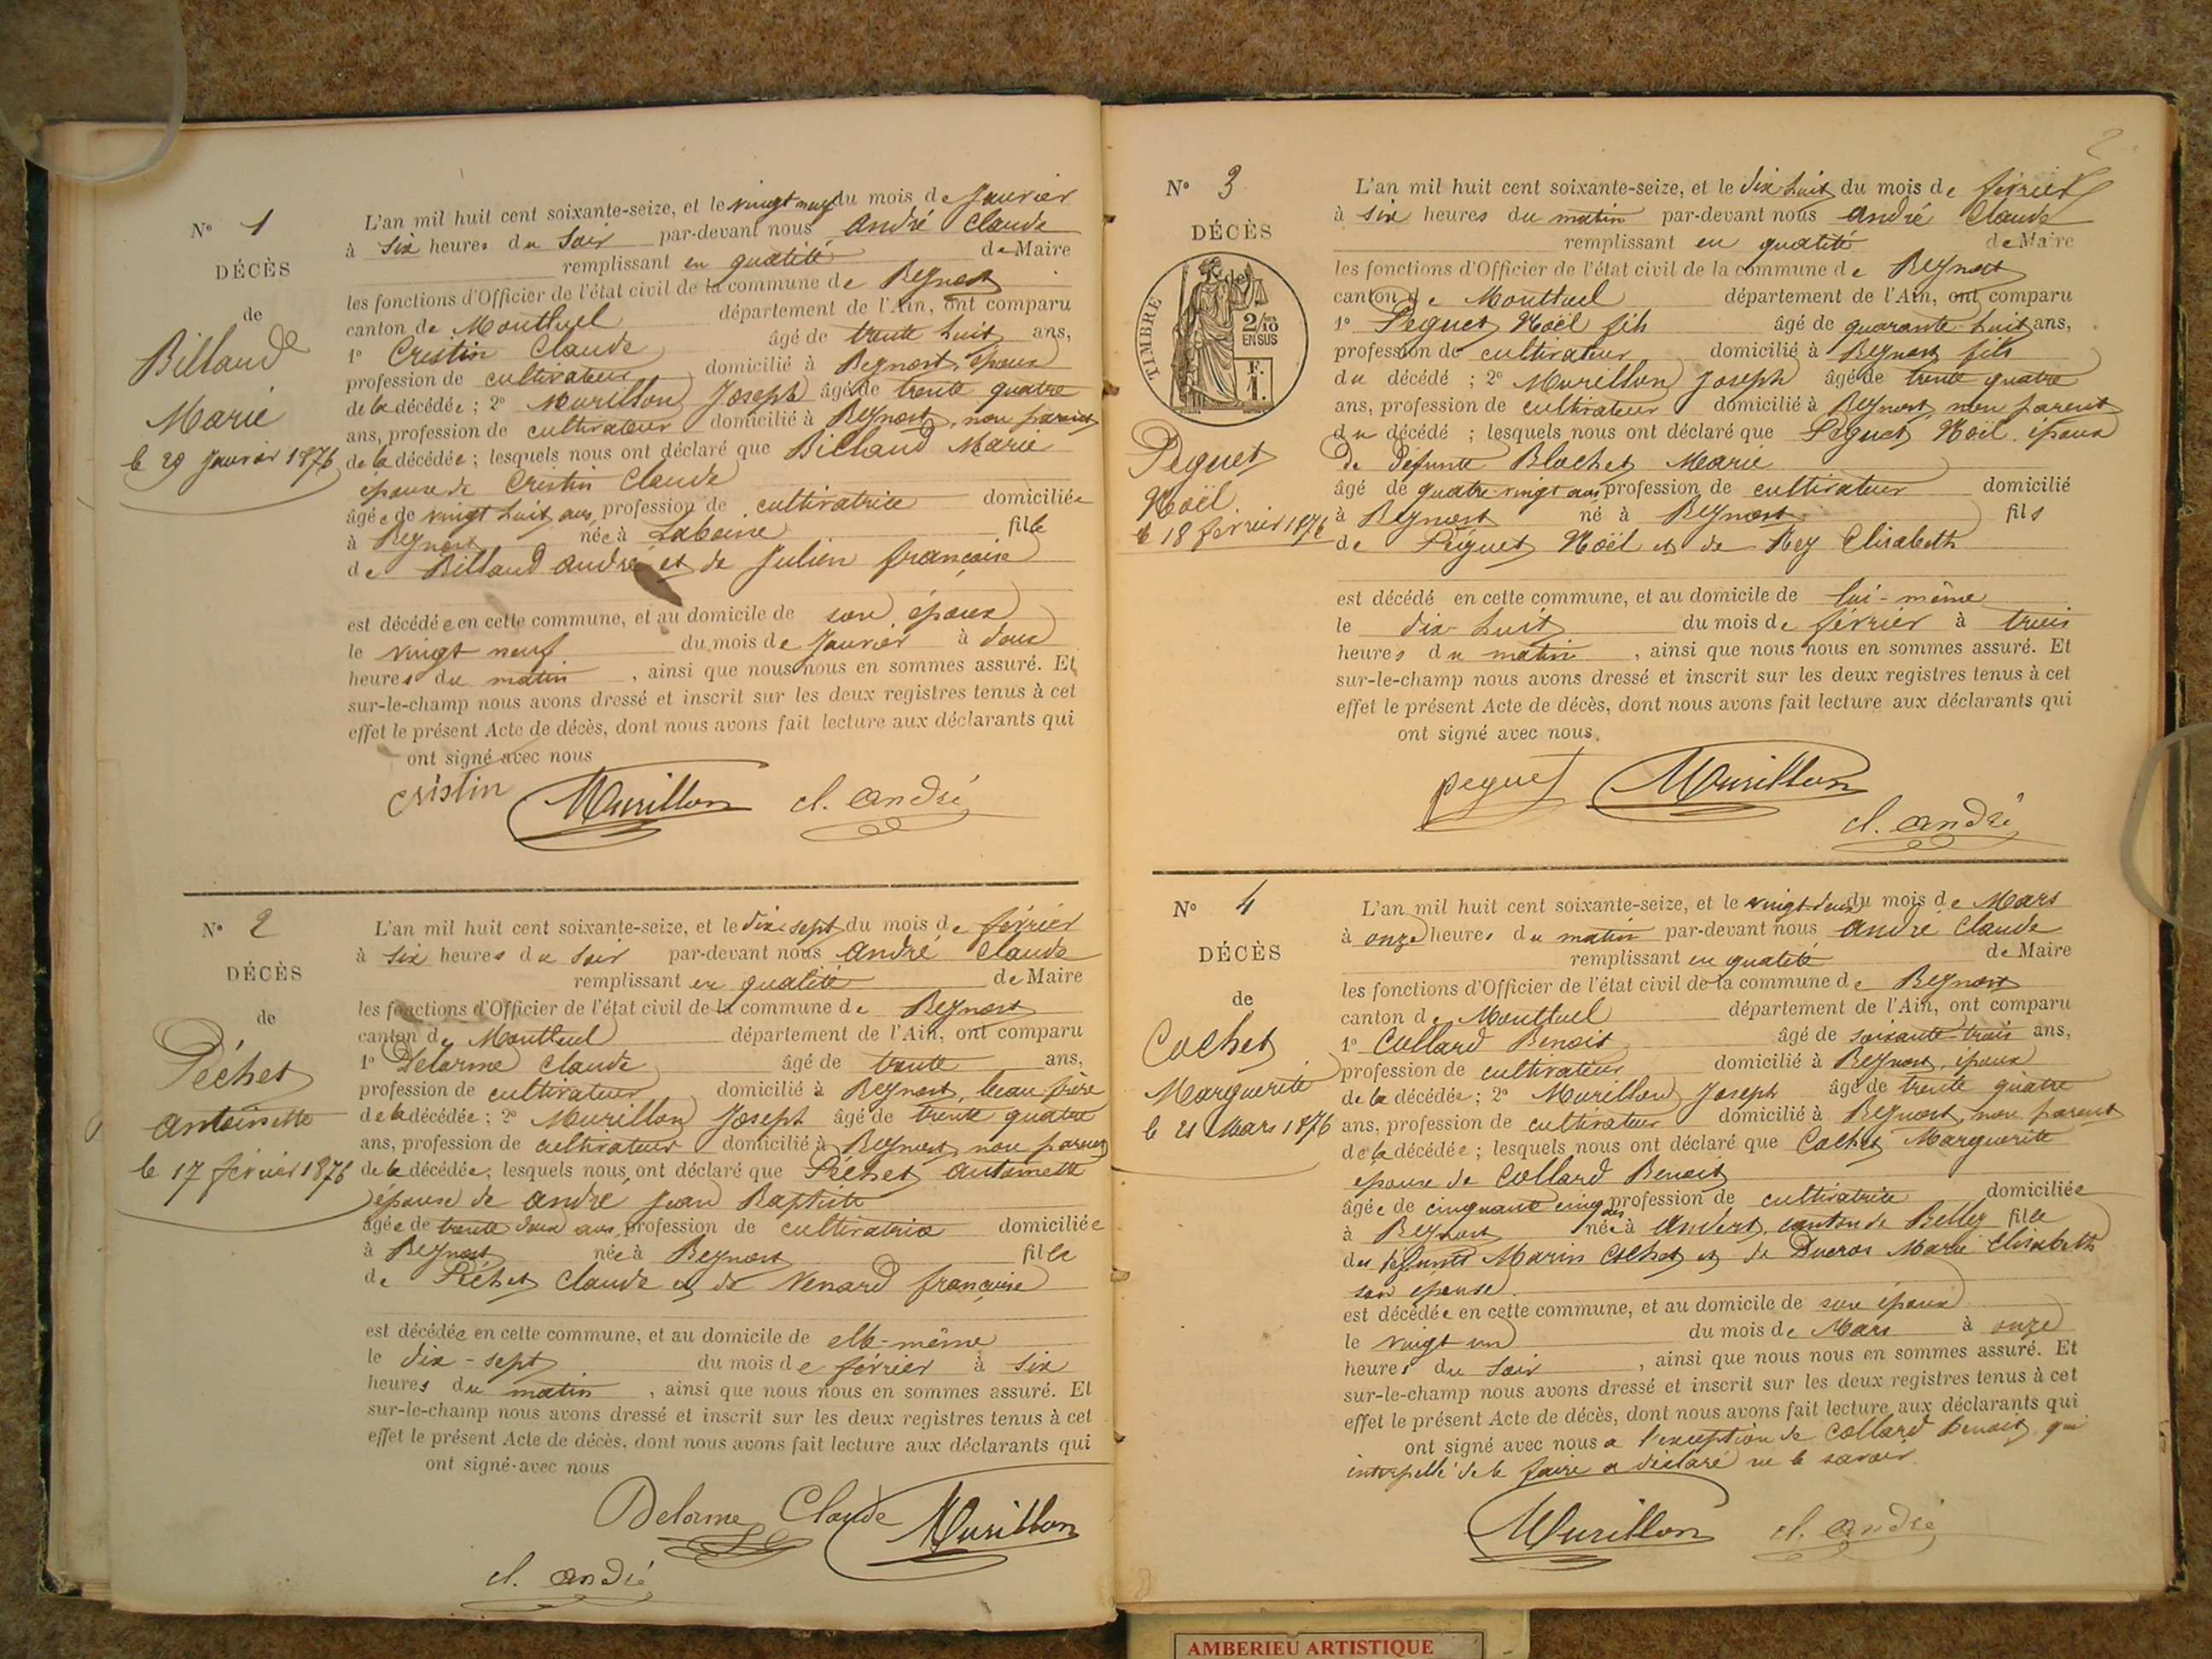 N° 1
DÉCÈS
de
Billaud
Marie
le 29 Janvier 1876
L'an mil huit cent soixante-seize, et le vingt neuf du mois de Janvier
à six heures du soir par-devant nous André Claude
remplissant en qualité de Maire
les fonctions d'Officier de l'état civil de la commune de Beynost
canton de Montluel département de l'Ain, ont comparu
1° Cristin Claude âgé de trente huit ans,
profession de cultivateur domicilié à Beynost, époux
de la décédée ; 2° Murillon Joseph âgé de trente quatre
ans, profession de cultivateur domicilié à Beynost, non parent
de la décédée ; lesquels nous ont déclaré que Billaud Marie
épouse de Cristin Claude
âgée de vingt huit ans, profession de cultivatrice domiciliée
à Beynost née à Laboisse fille
de Billaud André et de Julien françoise
est décédée en cette commune, et au domicile de son époux
le vingt neuf du mois de Janvier à deux
heures du matin , ainsi que nous nous en sommes assuré. Et
sur-le-champ nous avons dressé et inscrit sur les deux registres tenus à cet
effet le présent Acte de décès, dont nous avons fait lecture aux déclarants qui
ont signé avec nous
cristin Murillon cl. andré
N° 2
DÉCÈS
de
Péchet
Antoinette
le 17 février 1876
L'an mil huit cent soixante-seize, et le dix sept du mois de février
à six heures du soir par-devant nous André Claude
remplissant en qualité de Maire
les fonctions d'Officier de l'état civil de la commune de Beynost
canton de Montluel département de l'Ain, ont comparu
1° Delorme Claude âgé de trente ans,
profession de cultivateur domicilié à Beynost, beau-frère
de la décédée ; 2° Murillon Joseph âgé de trente quatre
ans, profession de cultivateur domicilié à Beynost, non parent
de la décédée, lesquels nous ont déclaré que Péchet Antoinette
épouse de André Jean Baptiste
âgée de trente deux ans, profession de cultivatrice domiciliée
à Beynost née à Beynost fille
de Péchet Claude et de Venard françoise
est décédée en cette commune, et au domicile de elle-même
le dix-sept du mois de février à six
heures du matin , ainsi que nous nous en sommes assuré. Et
sur-le-champ nous avons dressé et inscrit sur les deux registres tenus à cet
effet le présent Acte de décès, dont nous avons fait lecture aux déclarants qui
ont signé avec nous
Delorme Claude Murillon
cl. andré
2
N° 3
DÉCÈS
de
TIMBRE
2/10
EN SUS
F.
1.
Peguet
Noël
le 18 février 1876
L'an mil huit cent soixante-seize, et le dix huit du mois de février
à six heures du matin par-devant nous André Claude
remplissant en qualité de Maire
les fonctions d'Officier de l'état civil de la commune de Beynost
canton de Montluel département de l'Ain, ont comparu
1° Peguet Noël fils âgé de quarante-huit ans,
profession de cultivateur domicilié à Beynost fils
du décédé ; 2° Murillon Joseph âgé de trente quatre
ans, profession de cultivateur domicilié à Beynost, non parent
du décédé ; lesquels nous ont déclaré que Peguet Noël époux
de défunte Blachet Marie
âgé de quatre-vingt ans profession de cultivateur domicilié
à Beynost né à Beynost fils
de Peguet Noël et de Rey Elisabeth
est décédé en cette commune, et au domicile de lui-même
le dix-huit du mois de février à trois
heures du matin , ainsi que nous nous en sommes assuré. Et
sur-le-champ nous avons dressé et inscrit sur les deux registres tenus à cet
effet le présent Acte de décès, dont nous avons fait lecture aux déclarants qui
ont signé avec nous.
peguet Murillon
cl. andré
N° 4
DÉCÈS
de
Cochet
Marguerite
le 21 Mars 1876
L'an mil huit cent soixante-seize, et le vingt deux du mois de Mars
à onze heures du matin par-devant nous André Claude
remplissant en qualité de Maire
les fonctions d'Officier de l'état civil de la commune de Beynost
canton de Montluel département de l'Ain, ont comparu
1° Collard Benoit âgé de soixante-trois ans,
profession de cultivateur domicilié à Beynost, époux
de la décédée ; 2° Murillon Joseph âgé de trente quatre
ans, profession de cultivateur domicilié à Beynost, non parent
de la décédée ; lesquels nous ont déclaré que Cochet Marguerite
épouse de Collard Benoit
âgée de cinquante cinq ans profession de cultivatrice domiciliée
à Beynost née à Andert, canton de Belley fille
des défunts Marin Cochet et de Ducros Marie Elisabeth
son épouse
est décédée en cette commune, et au domicile de son époux
le vingt un du mois de Mars à onze
heures du soir , ainsi que nous nous en sommes assuré. Et
sur-le-champ nous avons dressé et inscrit sur les deux registres tenus à cet
effet le présent Acte de décès, dont nous avons fait lecture aux déclarants qui
ont signé avec nous a l'exception de Collard Benoit, qui
interpellé de le faire a déclaré ne le savoir
Murillon cl. andré
AMBERIEU ARTISTIQUE